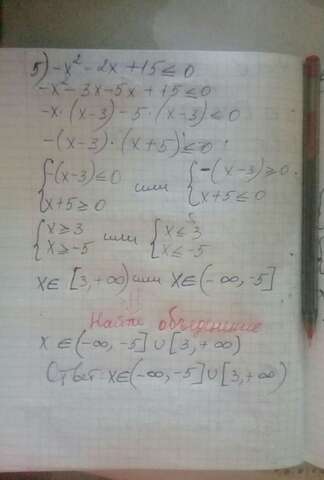 5) -x² - 2x + 15 ≤ 0
-x² - 3x - 5x + 15 ≤ 0
-x·(x-3) - 5·(x-3) ≤ 0
-(x-3)·(x+5) ≤ 0
{-(x-3) ≤ 0 или {-(x-3) ≥ 0
x+5 ≥ 0 x+5 ≤ 0
{x ≥ 3 или {x ≤ 3
x ≥ -5 x ≤ -5
x ∈ [3, +∞) или x ∈ (-∞, -5]
Найти объединение
x ∈ (-∞, -5] ∪ [3, +∞)
Ответ: x ∈ (-∞, -5] ∪ [3, +∞)